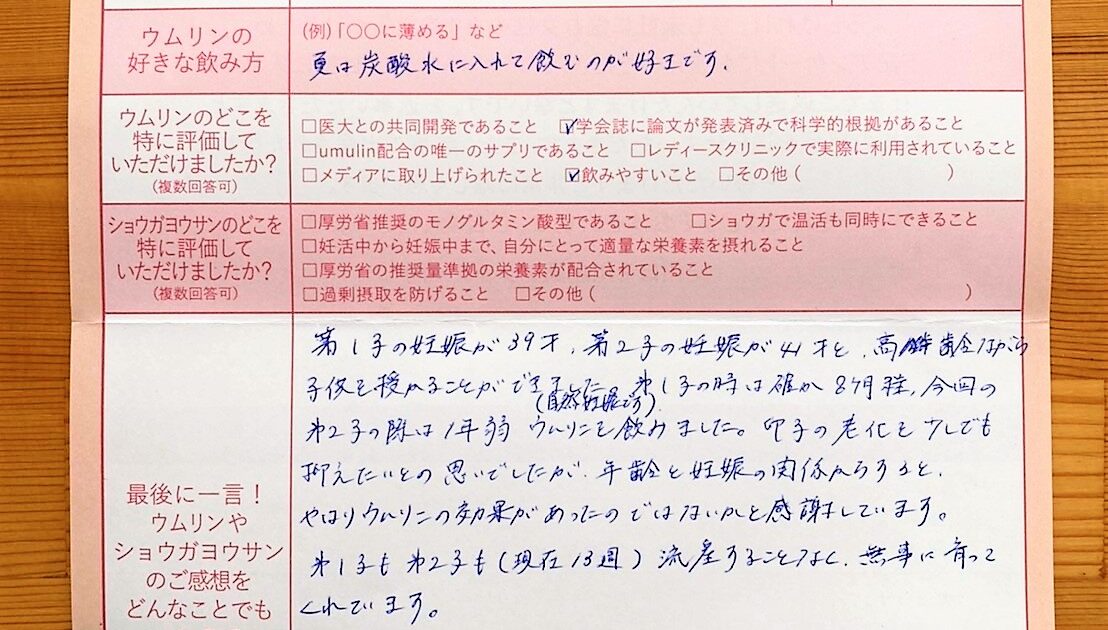 ウムリンの
好きな飲み方
(例)「〇〇に薄める」など
夏は炭酸水に入れて飲むのが好きです。
ウムリンのどこを
特に評価して
いただけましたか?
(複数回答可)
□医大との共同開発であること ☑学会誌に論文が発表済みで科学的根拠があること
□umulin配合の唯一のサプリであること □レディースクリニックで実際に利用されていること
□メディアに取り上げられたこと ☑飲みやすいこと □その他( )
ショウガヨウサンのどこを
特に評価して
いただけましたか?
(複数回答可)
□厚労省推奨のモノグルタミン酸型であること □ショウガで温活も同時にできること
□妊活中から妊娠中まで、自分にとって適量な栄養素を摂れること
□厚労省の推奨量準拠の栄養素が配合されていること
□過剰摂取を防げること □その他( )
最後に一言!
ウムリンや
ショウガヨウサン
のご感想を
どんなことでも
第1子の妊娠が39才、第2子の妊娠が41才と、高齢ながら
子供を授かることができました。第1子の時は確か8ヶ月程、今回の
(自然妊娠です)
第2子の際は1年弱 ウムリンを飲みました。卵子の老化を少しでも
抑えたいとの思いでしたが、年齢と妊娠の関係からすると、
やはりウムリンの効果があったのではないかと感謝しています。
第1子も第2子も(現在13週)流産することなく、無事に育って
くれています。